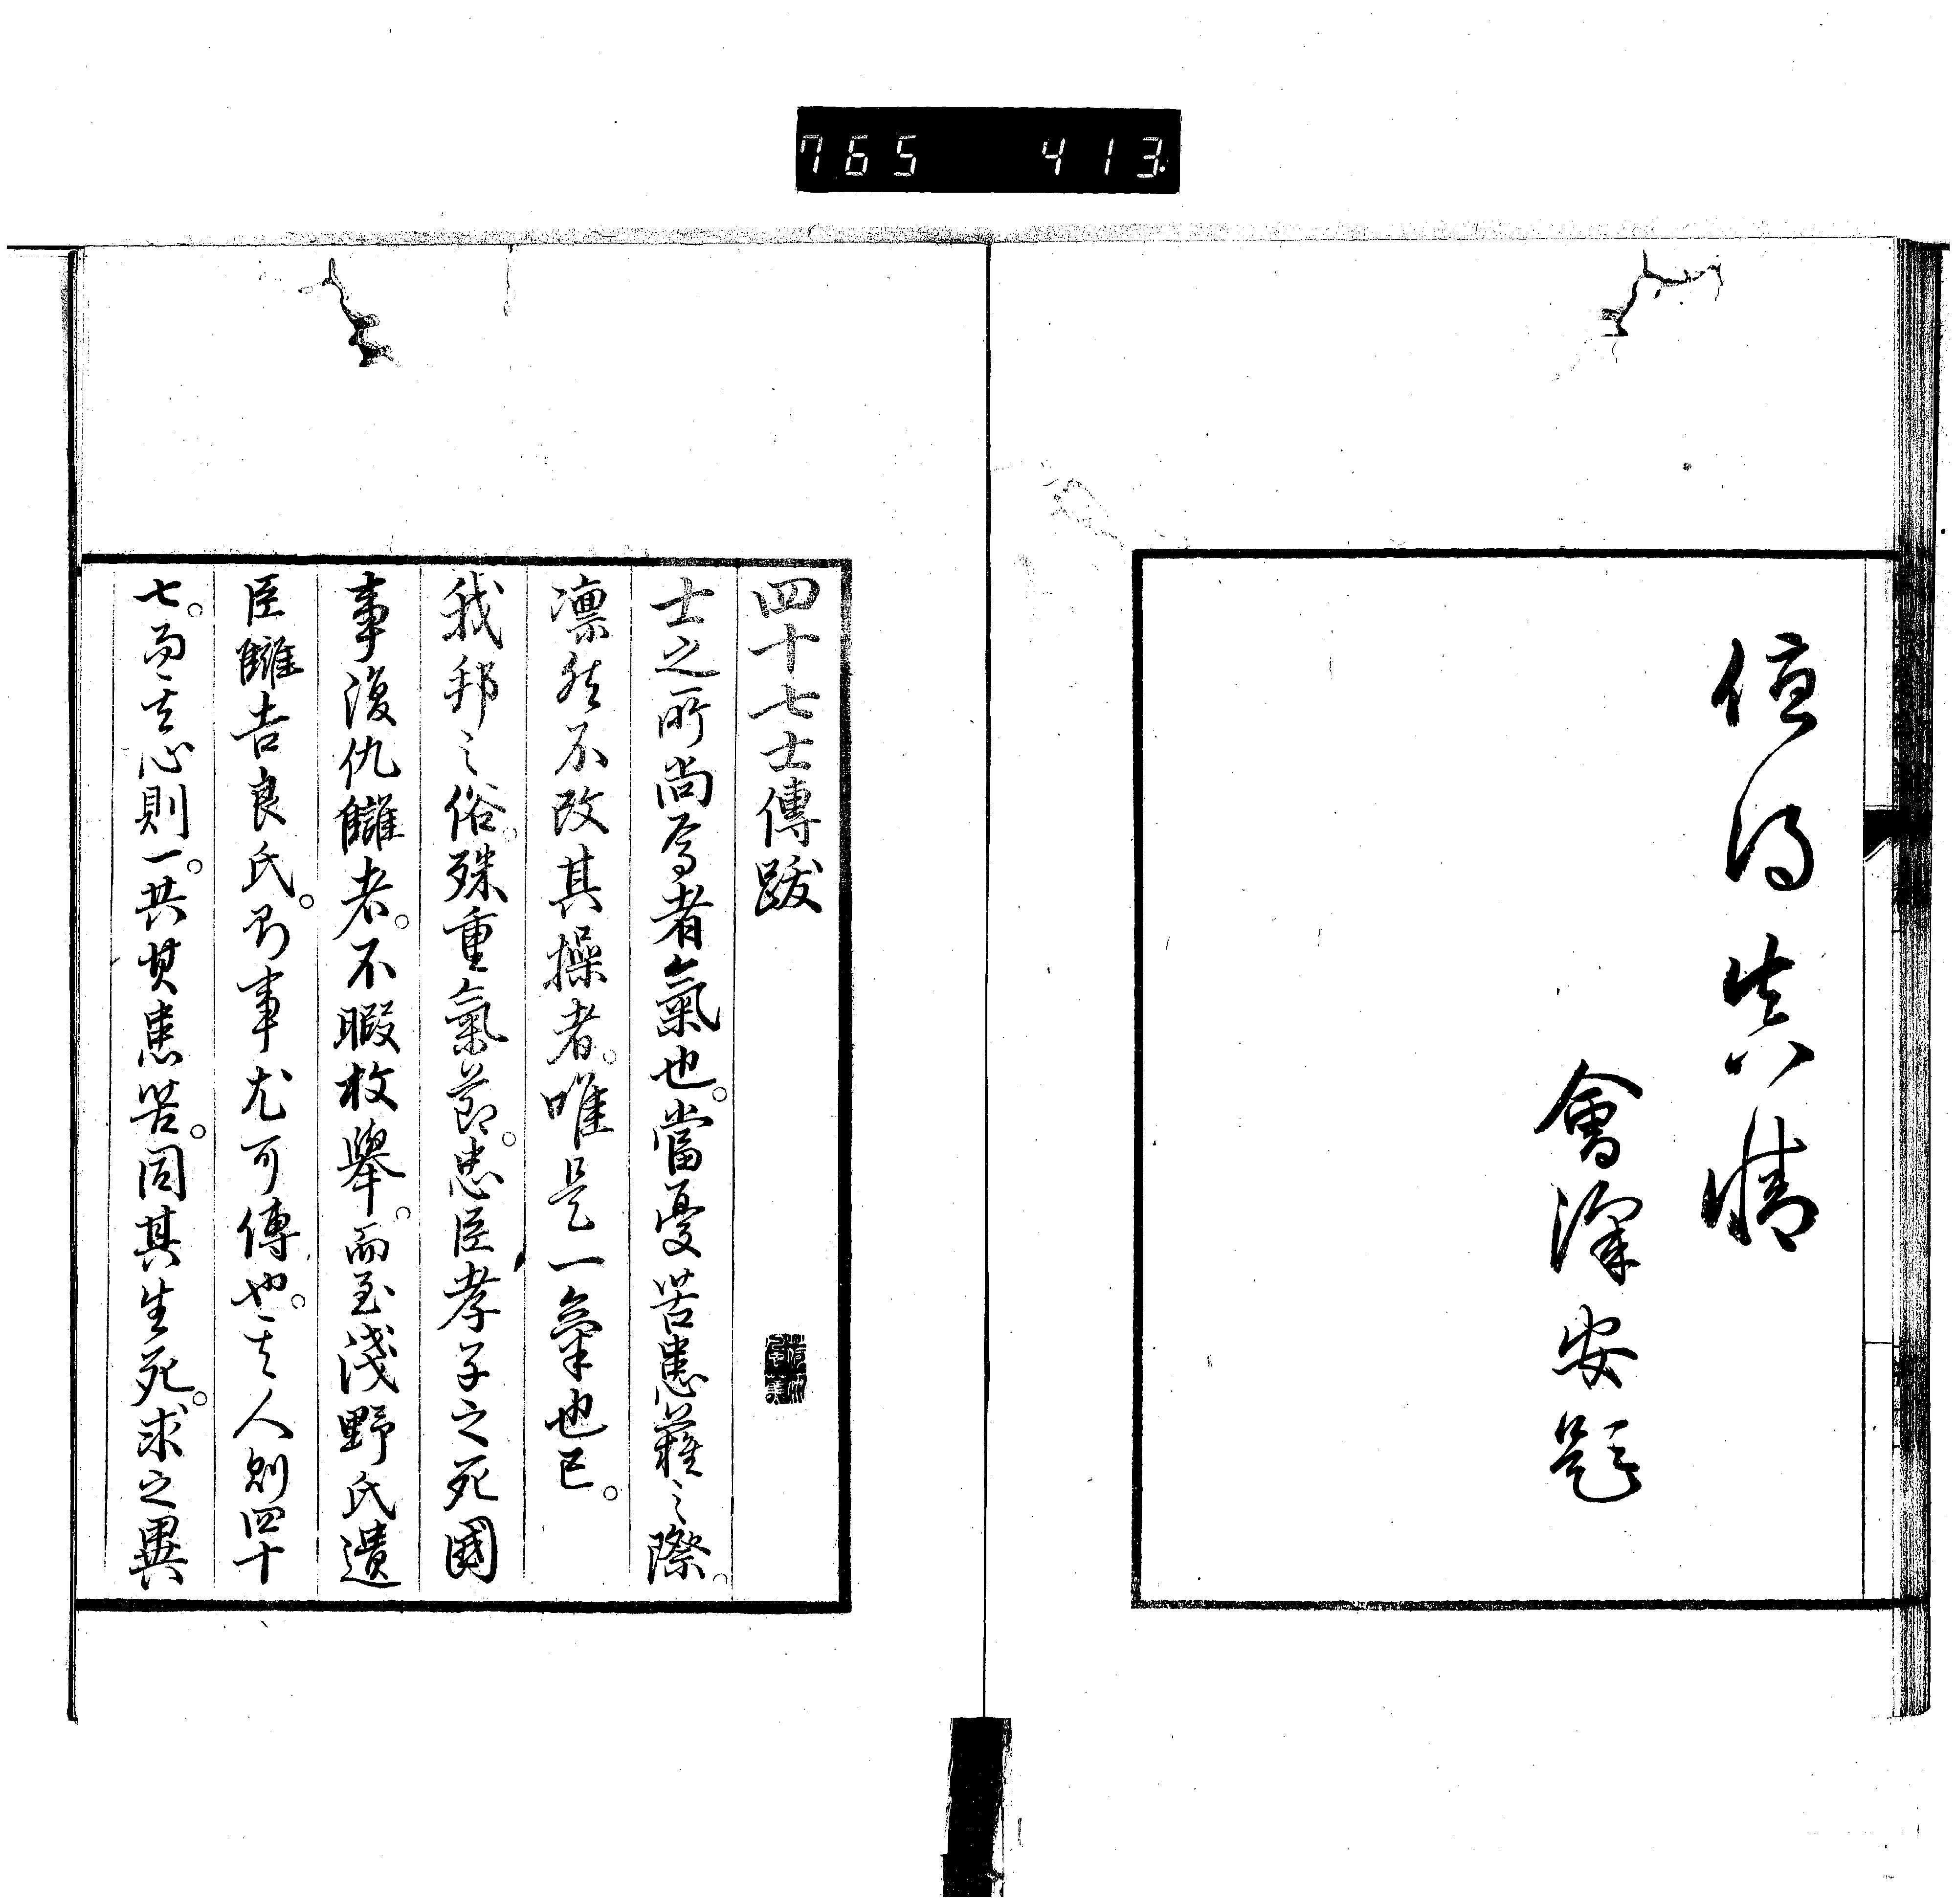 765 413
但得其情
會澤安題
四十七士傳跋
士之所尚焉者氣也。當憂苦患難之際。
凛然不改其操者。唯是一氣也已。
我邦之俗。殊重氣節。忠臣孝子之死國
事復仇讎者。不暇枚舉。而至淺野氏遺
臣讎吉良氏。則事尤可傳也。其人則四十
七。而其心則一。共其患苦。同其生死。求之異